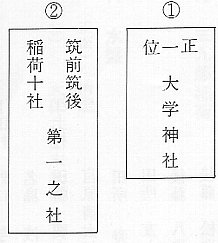 ①
正一位
大学神社
②
筑前筑後
稲荷十社
第一之社